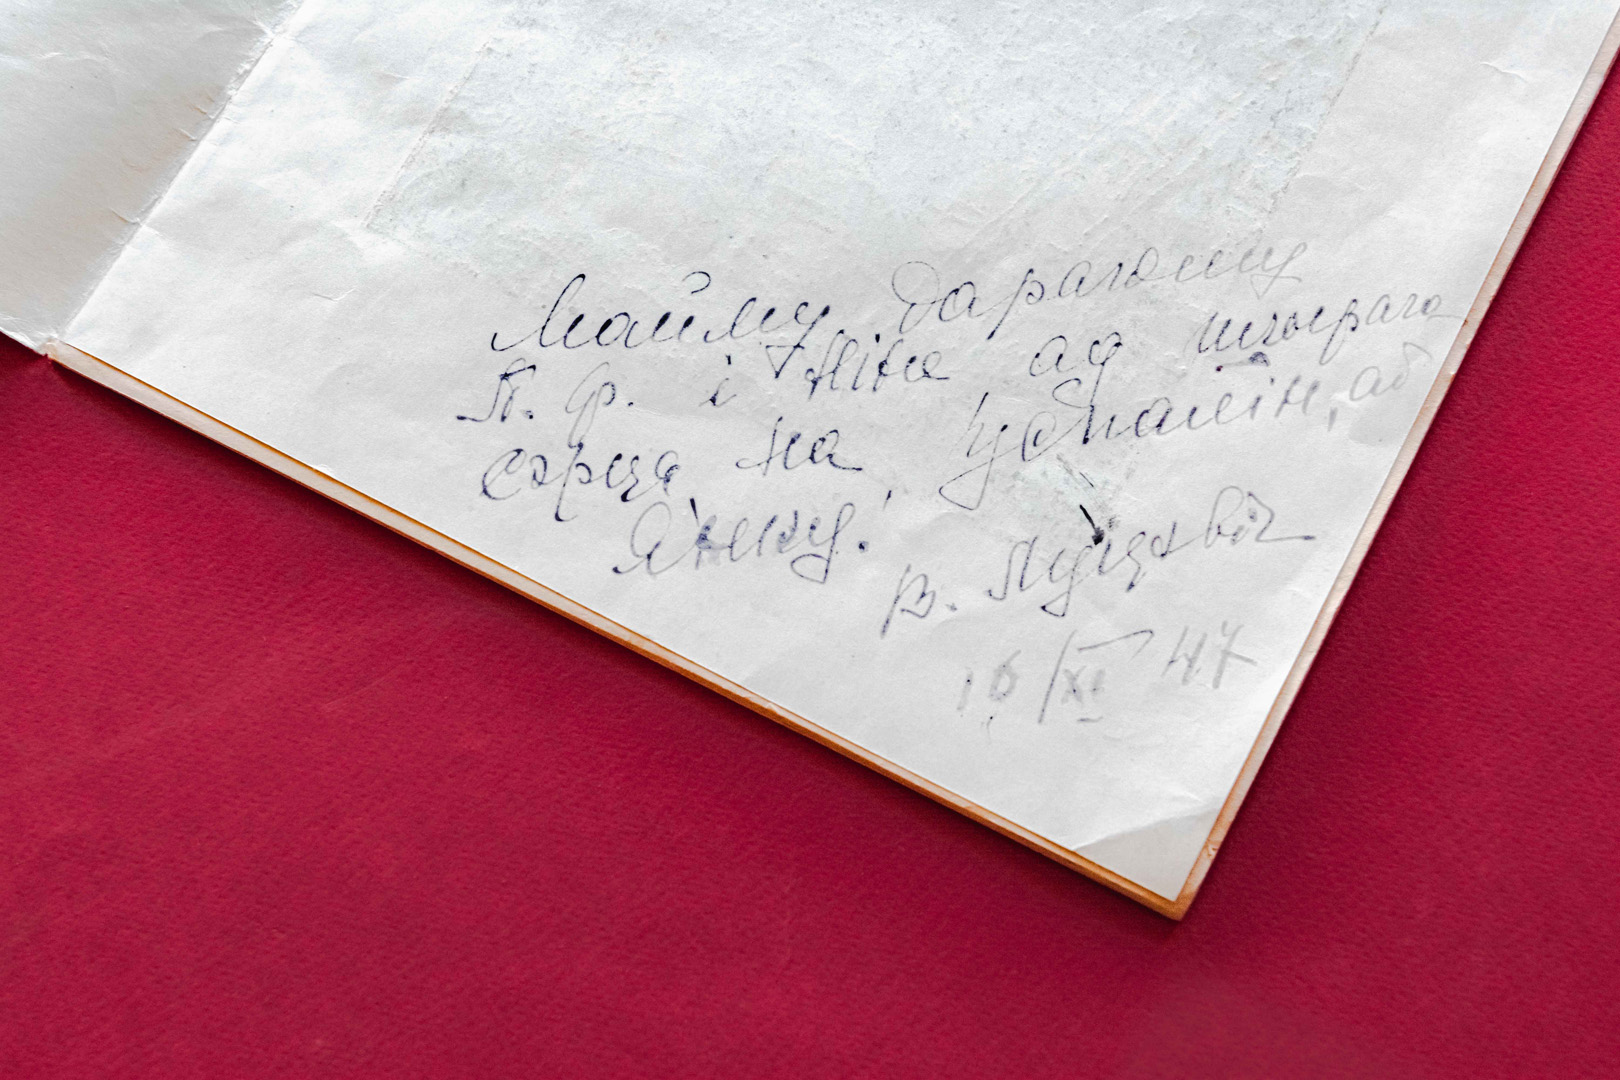 Майму дарагому
П. Ф. і Ніне ад шчырага
сэрца на ўспамін, аб
Янку!
В. Луцэвіч
16/XI 47